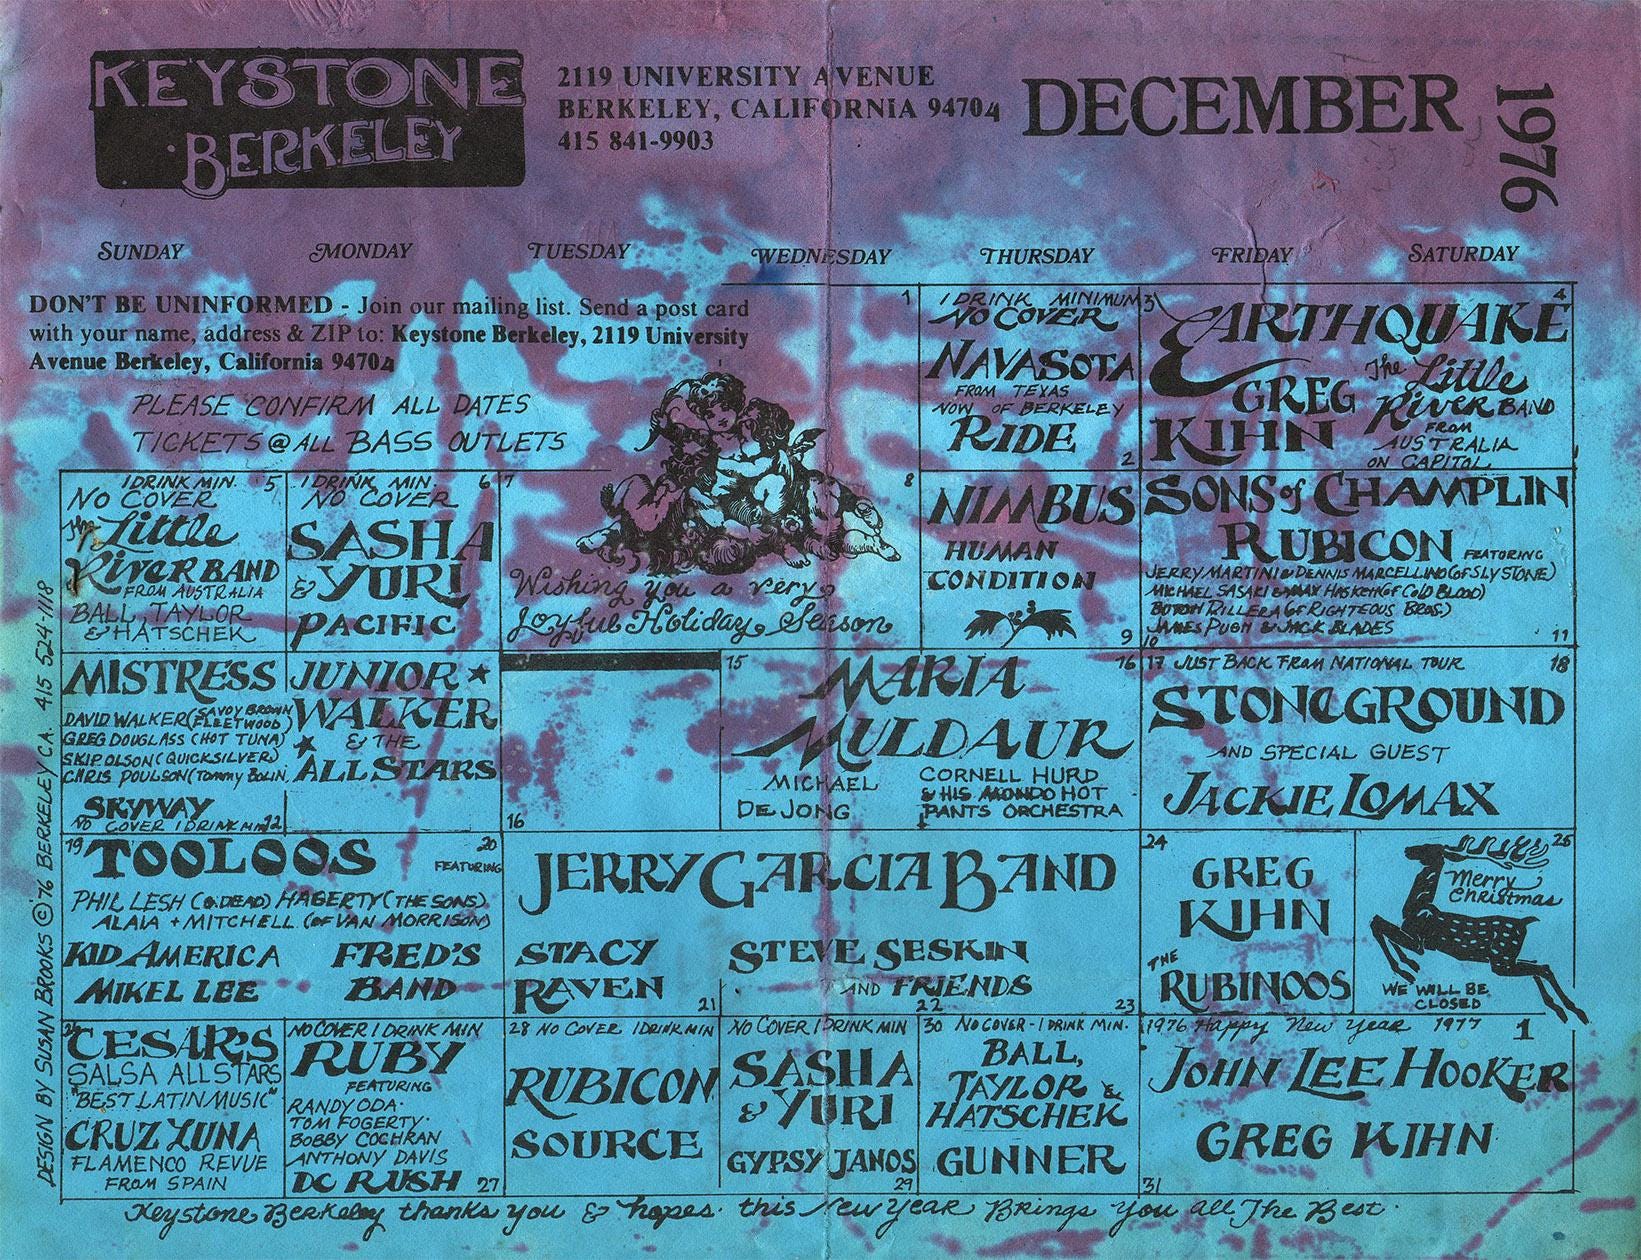 KEYSTONE
BERKELEY
2119 UNIVERSITY AVENUE
BERKELEY, CALIFORNIA 94704
415 841-9903
DECEMBER
1976
SUNDAY
MONDAY
TUESDAY
WEDNESDAY
THURSDAY
FRIDAY
SATURDAY
DON'T BE UNINFORMED - Join our mailing list. Send a post card
with your name, address & ZIP to: Keystone Berkeley, 2119 University
Avenue Berkeley, California 94704
PLEASE CONFIRM ALL DATES
TICKETS @ ALL BASS OUTLETS
1
1 DRINK MINIMUM
NO COVER
NAVASOTA
FROM TEXAS
NOW OF BERKELEY
RIDE
2
3
4
EARTHQUAKE
GREG
KIHN
The Little
River BAND
FROM
AUSTRALIA
ON CAPITOL
1 DRINK MIN. 5
NO COVER
The Little
River BAND
FROM AUSTRALIA
BALL, TAYLOR
& HATSCHEK
1 DRINK MIN. 6
NO COVER
SASHA
& YURI
PACIFIC
7
8
Wishing you a very
Joyful Holiday Season
NIMBUS
HUMAN
CONDITION
9
SONS of CHAMPLIN
RUBICON FEATURING
JERRY MARTINI & DENNIS MARCELLINO (OF SLY STONE)
MICHAEL SASAKI & MAX HASKETT (OF COLD BLOOD)
BOTON RILLERA (OF RIGHTEOUS BROS.)
JAMES PUGH & JACK BLADES
10
11
MISTRESS
DAVID WALKER (SAVOY BROWN
FLEETWOOD)
GREG DOUGLASS (HOT TUNA)
SKIP OLSON (QUICKSILVER)
CHRIS POULSON (Tommy BOLIN
SKYWAY
NO COVER 1 DRINK MIN 12
JUNIOR
WALKER
& THE
ALL STARS
16
15
16
MARIA
MULDAUR
MICHAEL
DE JONG
CORNELL HURD
& HIS MONDO HOT
PANTS ORCHESTRA
17 JUST BACK FROM NATIONAL TOUR 18
STONEGROUND
AND SPECIAL GUEST
JACKIE LOMAX
19
20
TOOLOOS
FEATURING
PHIL LESH (G. DEAD) HAGERTY (THE SONS)
ALAIA + MITCHELL (OF VAN MORRISON)
KID AMERICA
MIKEL LEE
FRED'S
BAND
JERRY GARCIA BAND
STACY
RAVEN
21
STEVE SESKIN
AND FRIENDS
22
23
24
GREG
KIHN
THE
RUBINOOS
25
Merry
Christmas
WE WILL BE
CLOSED
26
CESAR'S
SALSA ALL STARS
"BEST LATIN MUSIC"
CRUZ LUNA
FLAMENCO REVUE
FROM SPAIN
NO COVER 1 DRINK MIN
RUBY
FEATURING
RANDY ODA·
TOM FOGERTY·
BOBBY COCHRAN
ANTHONY DAVIS
DC RUSH 27
28 NO COVER 1 DRINK MIN
RUBICON
SOURCE
NO COVER 1 DRINK MIN
SASHA
& YURI
GYPSY JANOS
29
30 NO COVER - 1 DRINK MIN.
BALL,
TAYLOR &
HATSCHEK
GUNNER
1976 Happy New Year 1977 1
JOHN LEE HOOKER
GREG KIHN
31
DESIGN BY SUSAN BROOKS © '76 BERKELEY CA. 415 524-1118
Keystone Berkeley thanks you & hopes this New Year Brings you all The Best.